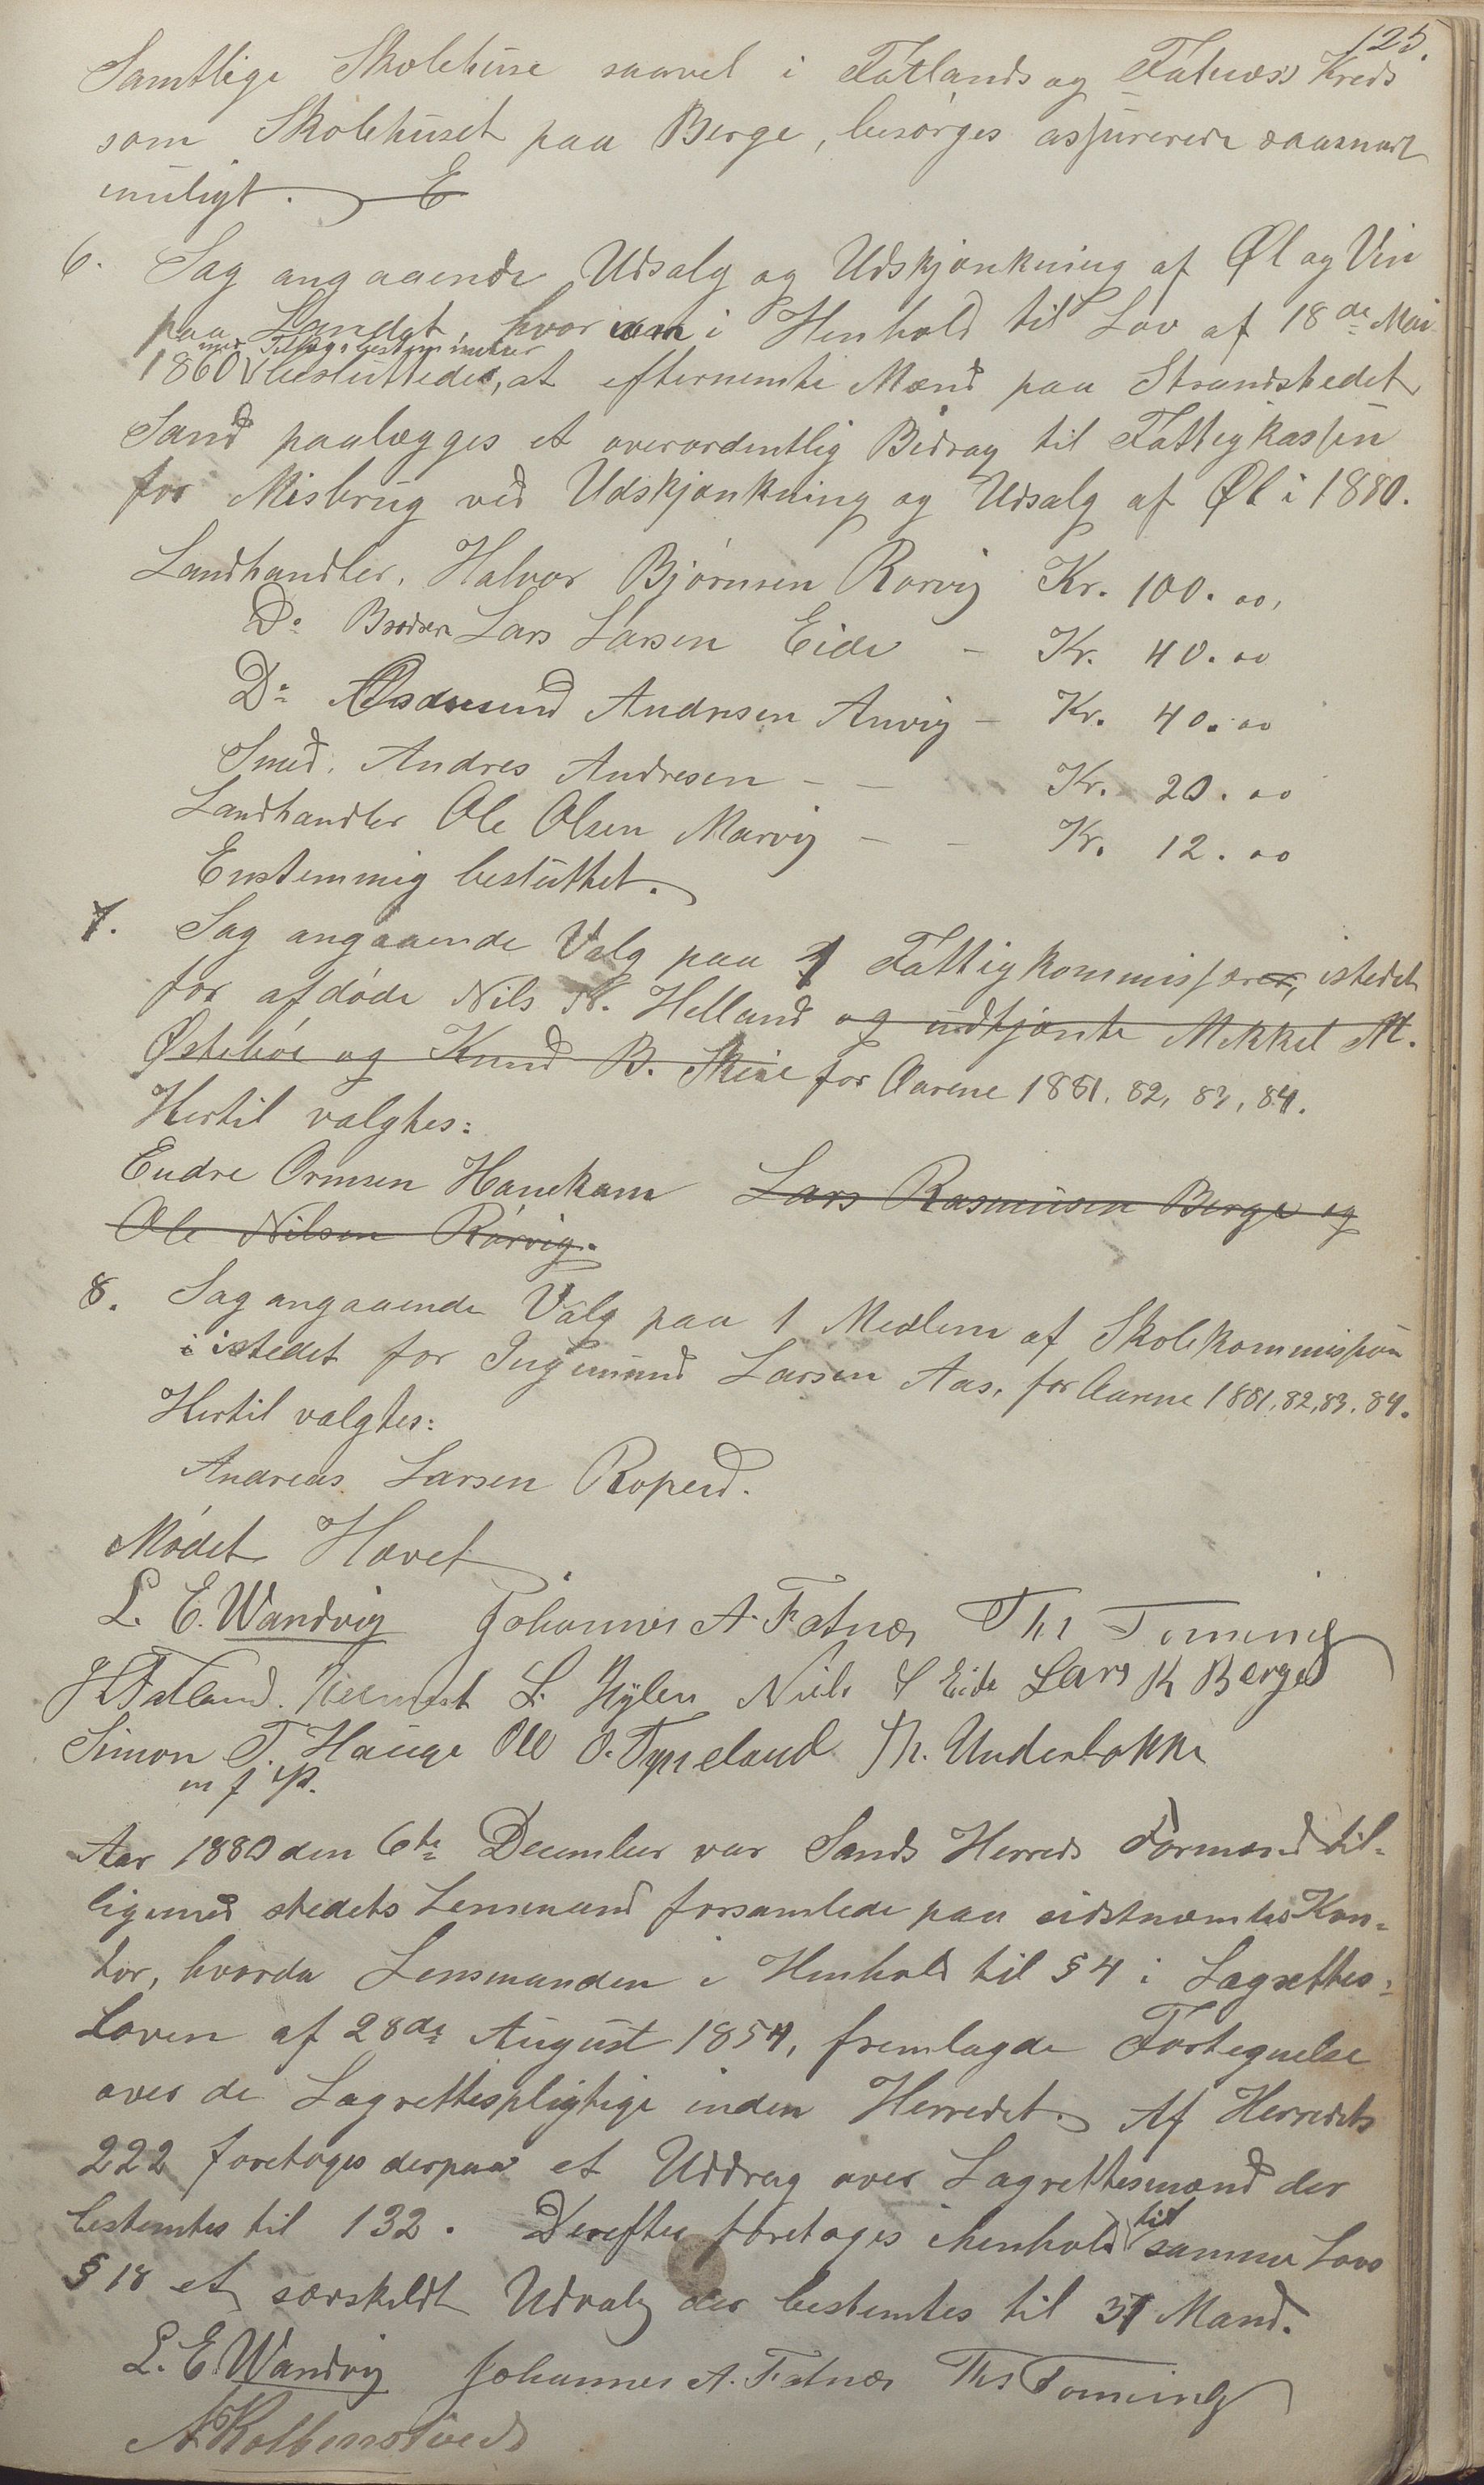 125.
Samtlige Skolehuse saavel i Fatlands og Fatnæs Kreds
som Skolehuset paa Berge, besørges assurerede saasnart
muligt.
6. Sag angaaende Udsalg og Udskjænkning af Øl og Vin
paa Landet, hvorom i Henhold til Lov af 18de Mai
med Tillægsbestemmelser
1860 besluttedes, at efternemte Mænd paa Strandstedet
Sand paalægges et overordentlig Bidrag til Fattigkassen
for Misbrug ved Udskjænkning og Udsalg af Øl i 1880.
Landhandler, Halvor Bjørnsen Rørvig Kr. 100.00,
Do Lars Larsen Eide - Kr. 40.00
Do Asmund Andresen Anvig - Kr. 40.00
Smed, Andres Andresen - - Kr. 20.00
Landhandler Ole Olsen Marvig - - Kr. 12.00
Enstemmig besluttet.
7. Sag angaaende Valg paa 1 Fattigkommissærer, istedet
for afdøde Nils N. Helland og udtjente Mikkel M.
Østebøe og Knud B. Skeie for Aarene 1881, 82, 83, 84.
Hertil valgtes:
Endre Ormsen Hanekam Lars Rasmusen Berge og
Ole Nilsen Rørvig.
8. Sag angaaende Valg paa 1 Medlem af Skolekommissjon
i istedet for Ingemund Larsen Aas, for Aarene 1881, 82, 83, 84.
Hertil valgtes:
Andreas Larsen Roperd.
Mødet Hævet
L. E. Wandvig Johannes A. Fatnæs Ths Tonning
H Fatland. L. Hylen Niels S Eide Lars K Berge
Simon T. Hauge Ole O. Tysseland Th. Underbakke
m f P.
Aar 1880 den 6te December var Sands Herreds Formænd til-
ligemed stedets Lensmand forsamlede paa sidstnæmtes Kon-
tor, hvorda Lensmanden i Henhold til § 4 i Lagrettes-
Loven af 28de August 1854, fremlagde Fortegnelse
over de Lagrettespligtige inden Herredet. Af Herredets
222 foretoges derpaa et Uddrag over Lagrettesmænd der
bestemtes til 132. Derefter foretoges ihenhold til samme Lovs
§ 18 et særskildt Udvalg der bestemtes til 37 Mand.
L. E. Wandvig Johannes A. Fatnæs Ths Tonning
A Kolbenstvedt